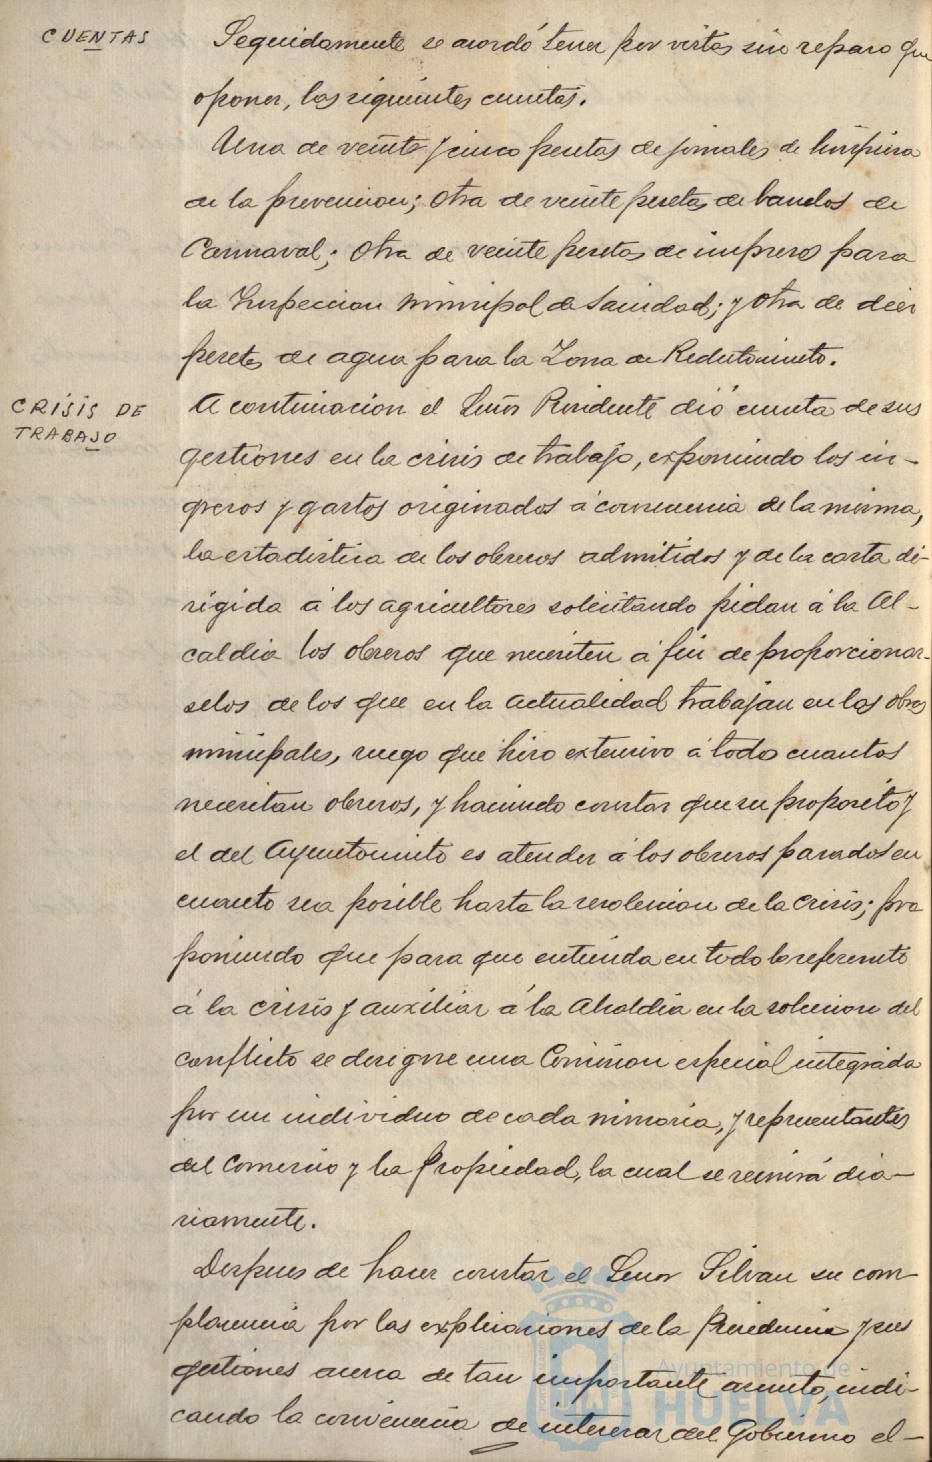 CUENTAS
Seguidamente se acordó tener por vistas sin reparo que
oponer, las siguientes cuentas.
Una de veinte y cinco pesetas de jornales de limpieza
de la prevencion; otra de veinte pesetas de bandos de
Carnaval; otra de veinte pesetas de impresos para
la Inspeccion municipal de Sanidad; y otra de diez
pesetas de agua para la Zona de Reclutamiento.
CRISIS DE
TRABAJO
A continuacion el Señor Presidente dió cuenta de sus
gestiones en la crisis de trabajo, exponiendo los in-
gresos y gastos originados á consecuencia de la misma,
la estadistica de los obreros admitidos y de la carta di-
rigida á los agricultores solicitando pidan á la Al-
caldia los obreros que necesiten á fin de proporcionar-
selos de los que en la actualidad trabajan en las obras
municipales, ruego que hizo extensivo á todo cuantos
necesitan obreros, y haciendo constar que su proposito y
el del Ayuntamiento es atender á los obreros parados en
cuanto sea posible hasta la resolucion de la crisis; pro
poniendo que para que entienda en todo lo referente
á la crisis y auxiliar á la Alcaldia en la solucion del
conflicto se designe una Comision especial integrada
por un individuo de cada minoria, y representantes
del Comercio y la Propiedad, la cual se reunirá dia-
riamente.
Despues de hacer constar el Señor Silvan su com-
placencia por las explicaciones de la Presidencia y sus
gestiones acerca de tan importante asunto, indi-
cando la conveniencia de interesar del Gobierno el-
Ayuntamiento de
HUELVA